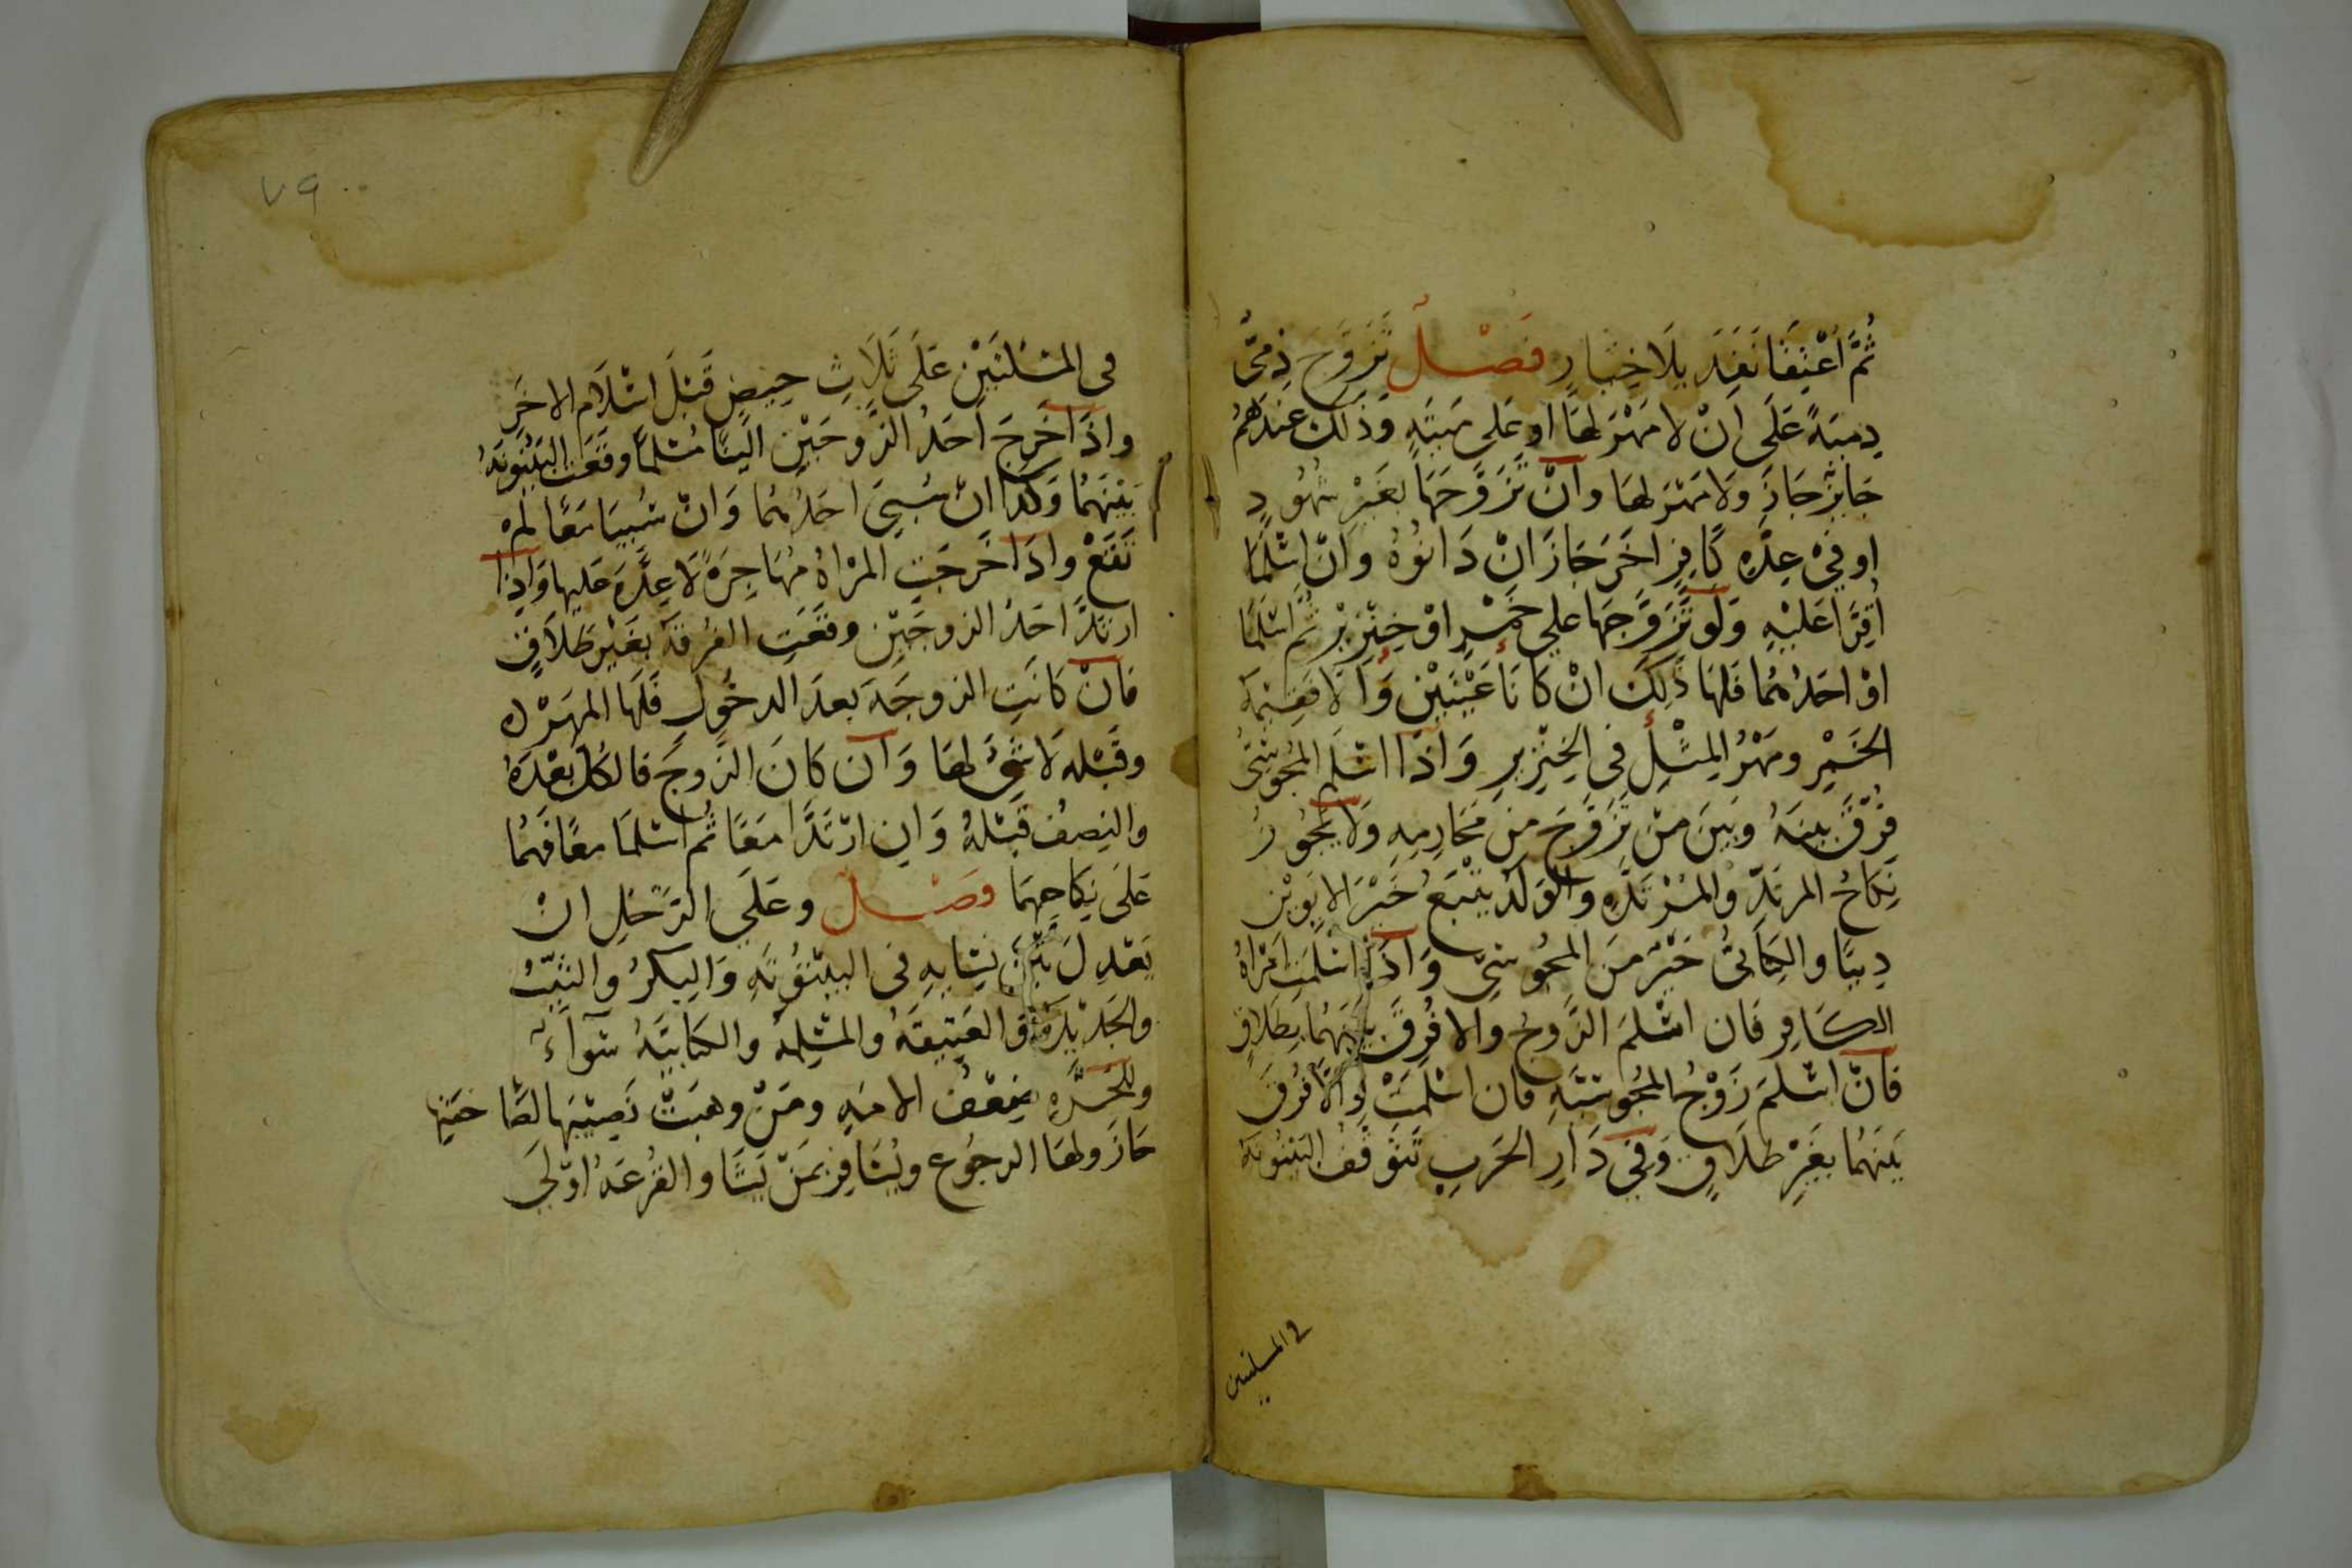 ثُمَّ أُعْتِقَا نَفَذَ بِلَا خِيَارٍ فَصْل تَزَوَّجَ ذِمِّيٌّ
ذِميَةً عَلَى اَنْ لا مَهْرَ لهَا او عَلى مَيتَةٍ وَذَلِكَ عِندَهُمْ
جَايزٌ جَازَ وَلَا مَهْرَ لهَا وانْ تَزَوَّجَهَا بغَيْرِ شُهُودٍ
او فيْ عِدَّةِ كَافِرٍ اخَرَ جَازَ انْ دَانُوْهُ وَانْ اسْلَمَا
اُقِرَّا عَلَيْهِ وَلَو تَزَوَّجَهَا علي خَمْرٍ اوْ خِنْزِيْرٍ ثُم اسْلَمَا
اوْ احَدُهُمَا فَلهَا ذَلِكَ انْ كَانَا عَيْنَيْنِ وَاِلا فَقِيْمَةُ
الخَمْرِ ومَهْرُ المِثْلِ فى الخِنْزِيرِ وَاذَا اسْلَم المجُوسِىُّ
فُرِّقَ بينَهُ وبَينَ مَنْ تَزَوَّجَ مِنْ مَحَارِمِهِ وَلا يَجُوزُ
نِكَاحُ المرتَدِّ والمُرْتَدَّةِ والوَلَدُ يَتْبَعُ خَيْرَ الابَوَيْنِ
دِينًا والكِتَابىُّ خَيْرٌ مِنَ المجُوسِىِّ وَاذَا اسْلَمَتِ امْرَاةُ
الكَافِرِ فَان اسْلَمَ الزَّوجُ والا فُرِّقَ بَيْنَهُمَا بِطَلاقٍ
فَانْ اسْلَمَ زَوْجُ المجُوسِيَّةِ فان اسْلَمَتْ وَاِلَّا فُرِّقَ
بَينَهُمَا بغَيْرِ طَلَاقٍ وَفي دَارِ الحَربِ تَتَوَقَّفُ البَيْنُونَةُ
في المسلتين
٧٩
فى المَسْئلتَيْنِ عَلَى ثَلَاثِ حِيَضٍ قَبْلَ اسْلَامِ الاخَرِ
واذَا خَرَجَ احَدُ الزَّوجَيْنِ الَيْنَا مُسْلمًا وقَعَتِ البَيْنُونَةُ
بَيْنَهُمَا وَكَذَا انْ سُبيَ احَدُهُمَا وَانْ سُبيَا مَعًا لَمْ
تَقَعْ واذَا خَرجَتِ المرْاةُ مُهَاجِرَةً لا عِدَّةَ عَليها وَاذَا
ارتَدَّ احَدُ الزوجَيْنِ وقَعَتِ الفُرقَة بغَيْرِ طَلاقٍ
فانْ كانَتِ الزوجَةَ بعدَ الدخُولِ فَلَها المهَرُ
وقَبْلهُ لا شَىْءَ لهَا وَان كَانَ الزَّوجَ فالكلُ بَعْدَهُ
والنِصفُ قَبْلهُ وَان ارْتَدَّا مَعًا ثُم اسْلمَا معًا فَهُمَا
عَلَى نِكَاحِهِمَا فصْل وعَلَى الرَّجُلِ انْ
يَعْدِلَ بَيْنَ نِسَايهِ فى البَيْتُوتَةِ وَالبِكرُ والثيِّبُ
والجَدِيْدَةُ والعَتِيقَةُ والمسْلِمةُ والكتَابيَّةُ سَوَآءٌ
وللحُرَّةِ ضِعْفُ الامَةِ ومَنْ وهبَتْ نَصِيْبَهَا لصَاحبَتِها
جَازَ ولهَا الرجُوع ويُسَافِرُ بمَنْ يَشَا والقُرْعَةُ اوْلَى